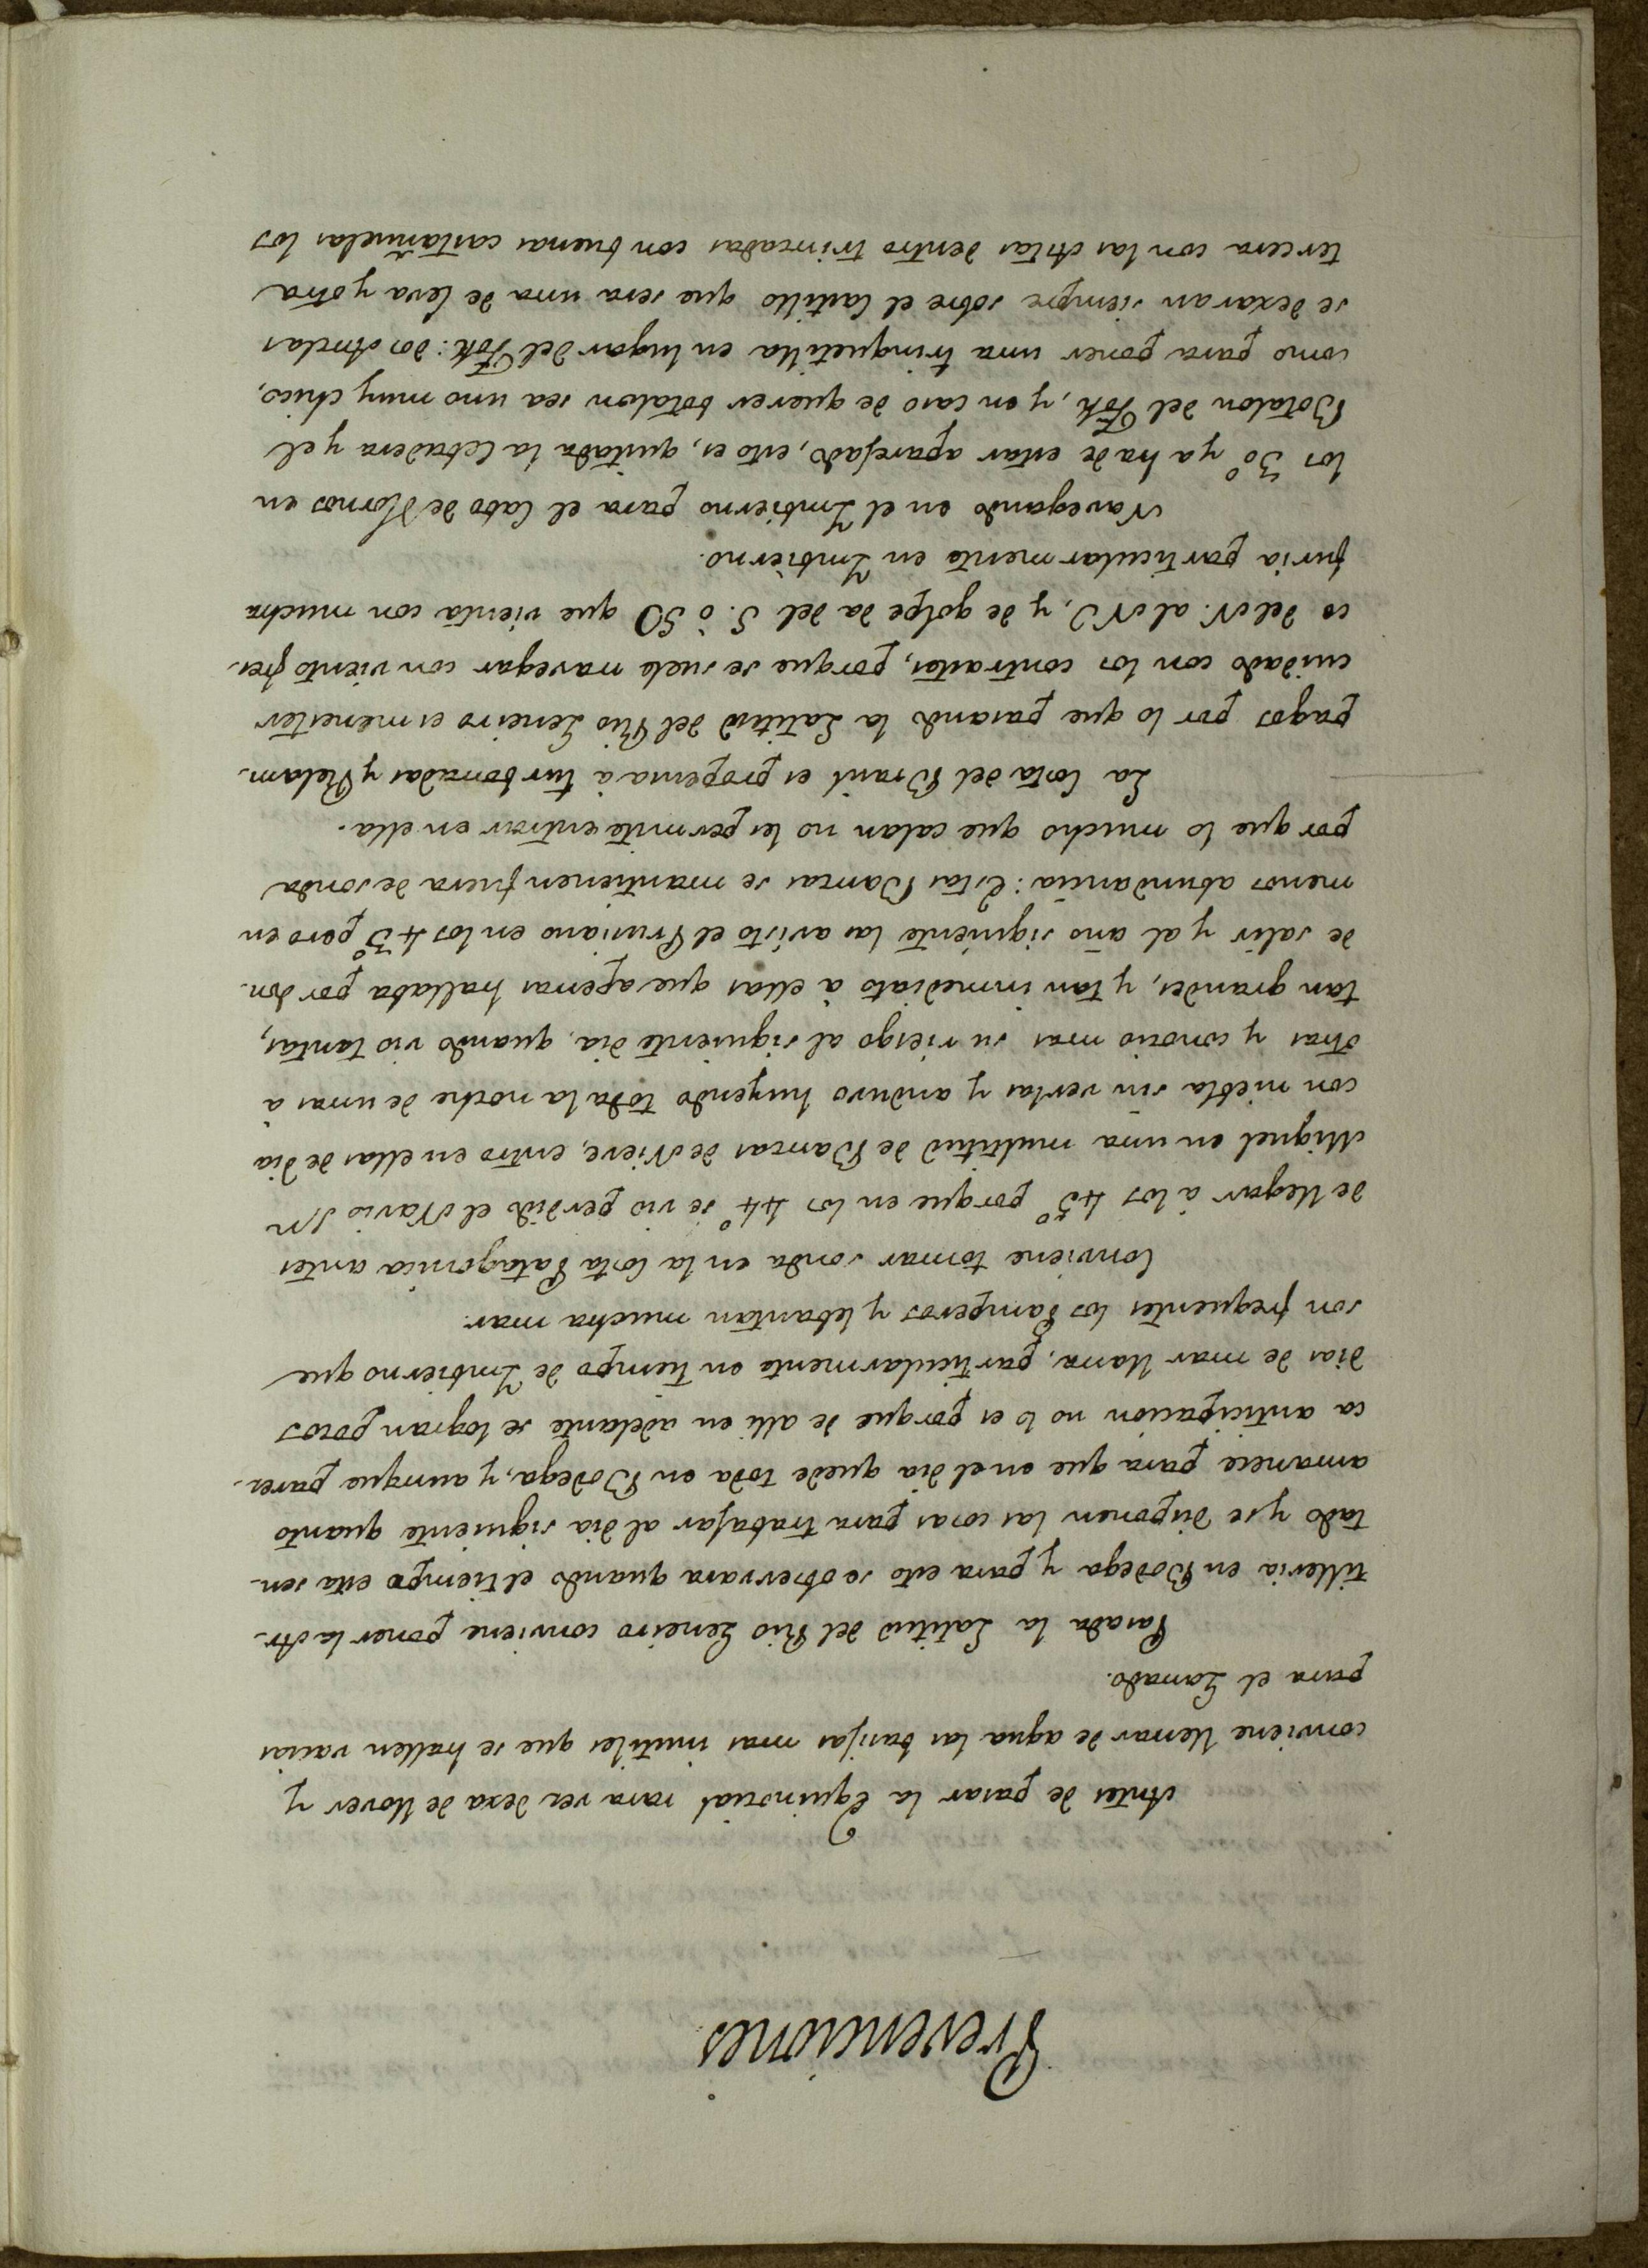 Prevenciones
Antes de pasar la Equinocial rara vez dexa de llover y
conviene llenar de agua las basijas mas inutiles que se hallen vacias
para el Ganado.
Pasada la Latitud del Rio Geneiro conviene poner la Ar-
tilleria en Bodega y para esto se observara quando el tiempo esta sen-
tado y se disponen las cosas para trabajar al dia siguiente quanto
amanece para que en el dia quede toda en Bodega, y aunque parez-
ca anticipacion no lo es porque de alli en adelante se logran pocos
dias de mar llana, particularmente en tiempo de Imbierno que
son frequentes los Pamperos y lebantan mucha mar.
Conviene tomar sonda en la Costa Patagonica antes
de llegar à los 45° porque en los 44° se vio perdido el Navio Sn
Miguel en una multitud de Bancas de Nieve, entro en ellas de dia
con niebla sin verlas y anduvo huyendo toda la noche de unas à
otras y conocio mas su riesgo al siguiente dia, quando vio tantas,
tan grandes, y tan inmediato à ellas que apenas hallaba por don-
de salir y al año siguiente las avisto el Prusiano en los 43° pero en
menos abundancia: Estas Bancas se mantienen fuera de sonda
por que lo mucho que calan no les permite entrar en ella.
La Costa del Brasil es propensa à turbonadas y Relam-
pagos por lo que pasando la Latitud del Rio Geneiro es menester
cuidado con los contrastes, porque se suele navegar con viento fres-
co del N. al NO, y de golpe da del S. ò SO que vienta con mucha
furia particularmente en Imbierno.
Navegando en el Imbierno para el Cabo de Hornos en
los 30° ya ha de estar aparejado, esto es, quitada la Cebadera y el
Botalon del Fok, y en caso de querer botalon sea uno muy chico,
como para poner una trinquetilla en lugar del Fok: dos Anclas
se dexaran siempre sobre el Castillo que sera una de leva y otra
tercera con las Astas dentro trincadas con buenas castañuelas los